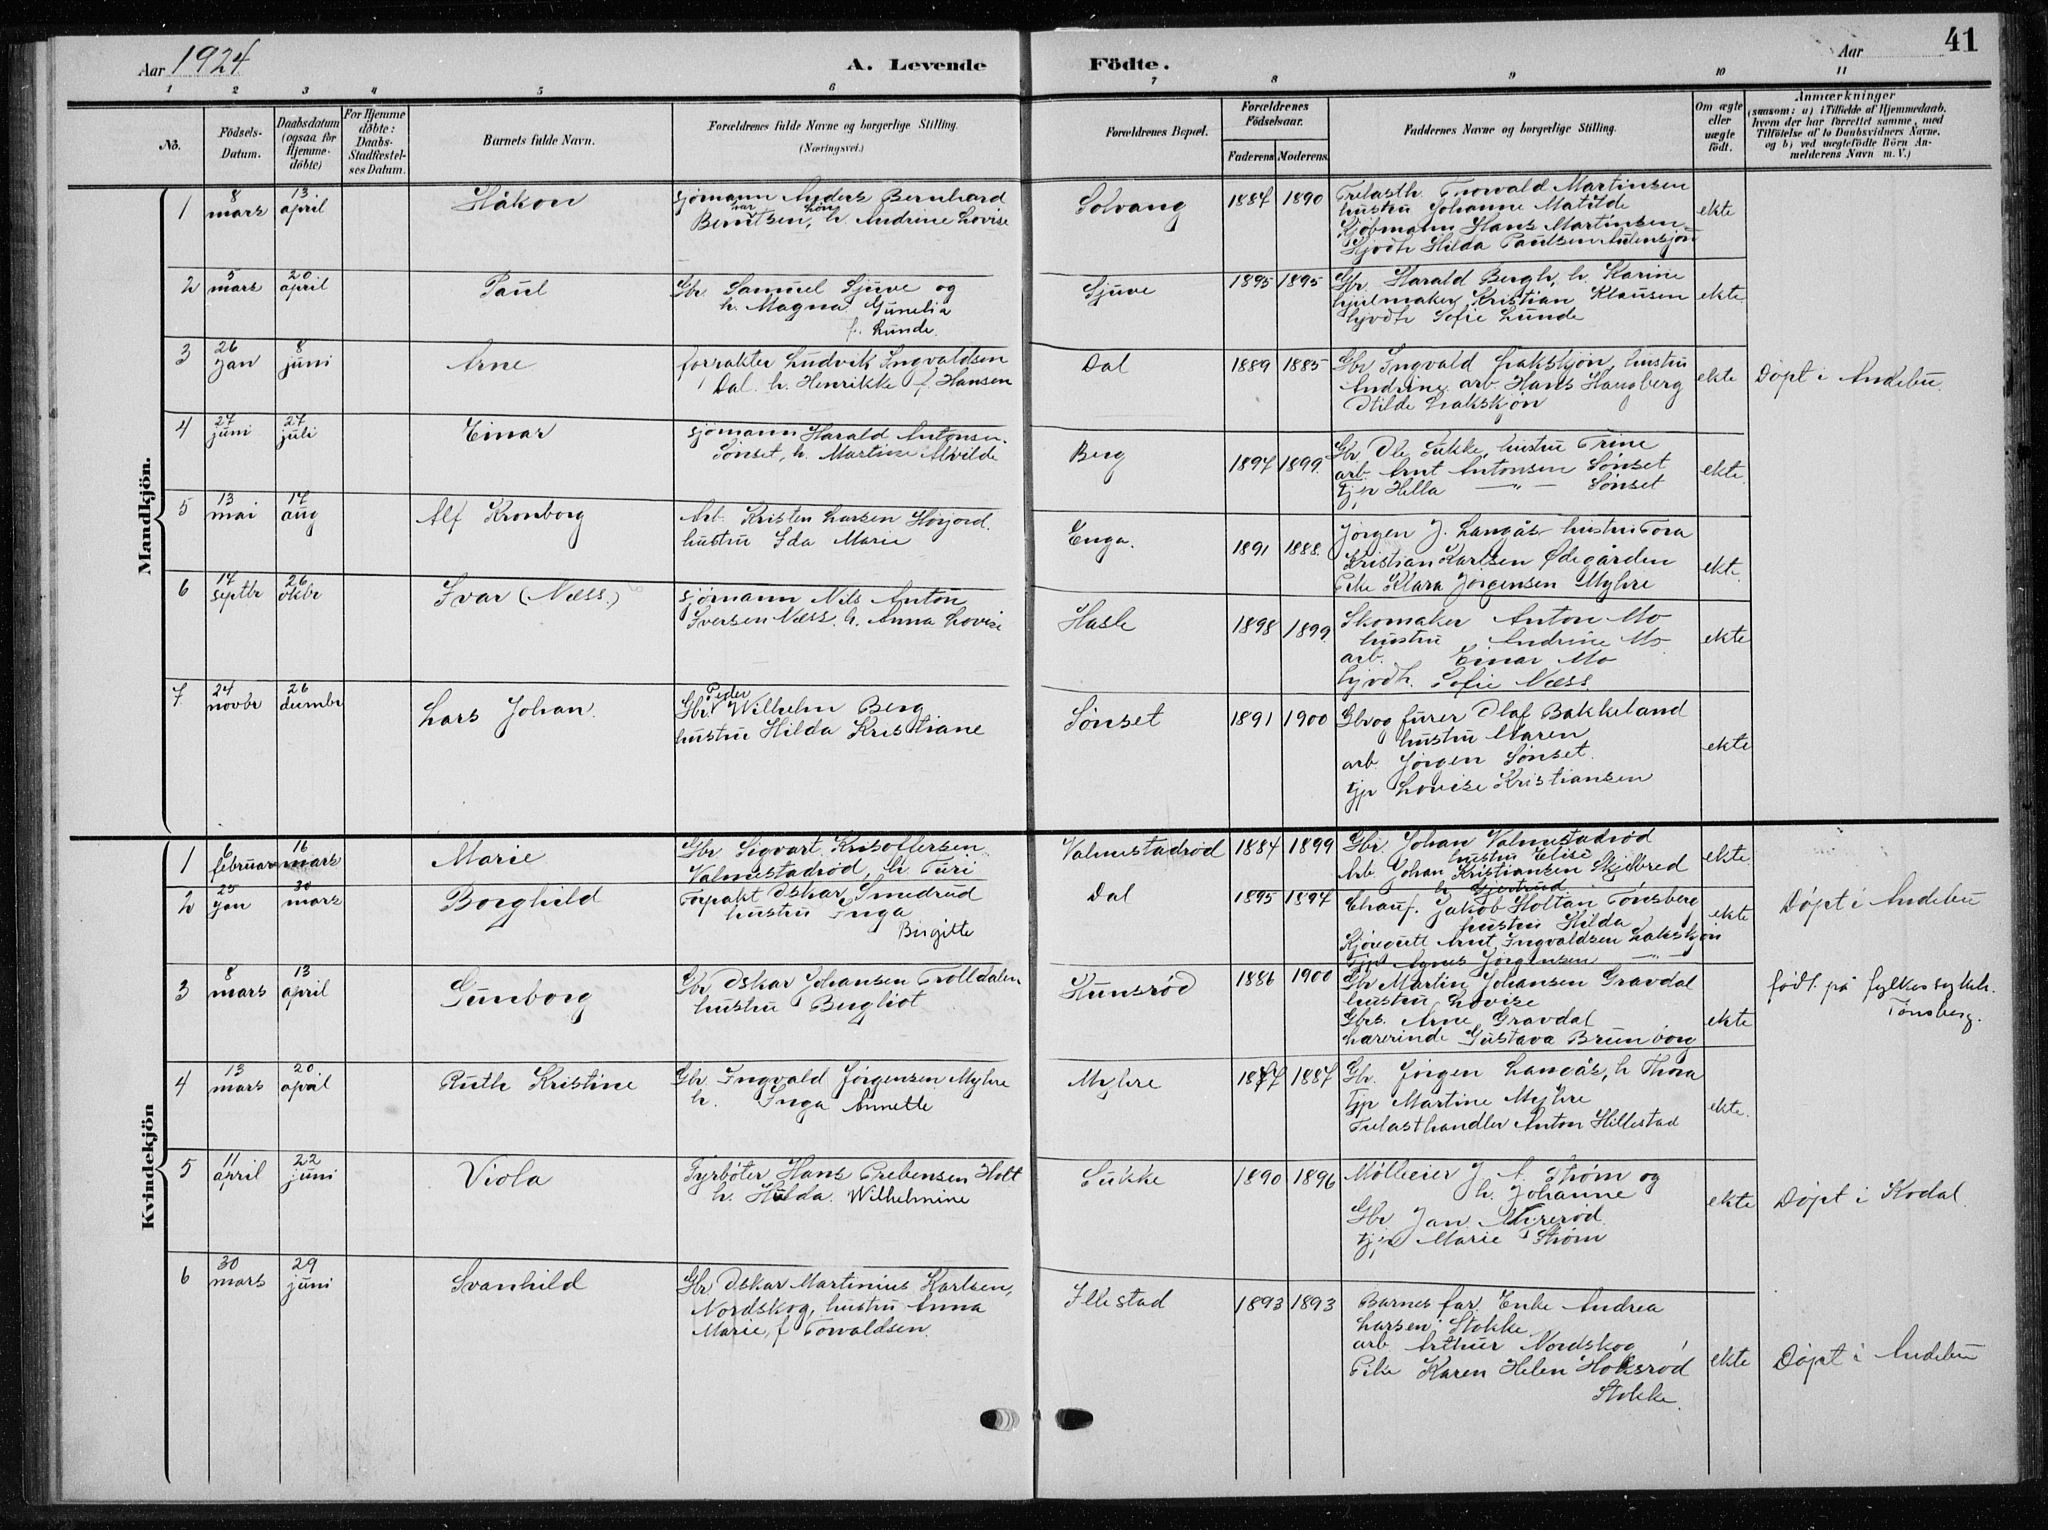 Aar 1924
A. Levende Födte.
Aar
41
1 2 3 4 5 6 7 8 9 10 11
No.
Födsels-Datum.
Daabsdatum (ogsaa for Hjemmedöbte)
For Hjemmedöbte: Daabs-Stadfæstelses Datum.
Barnets fulde Navn.
Forældrenes fulde Navne og borgerlige Stilling. (Næringsvei.)
Forældrenes Bopæl.
Forældrenes Födselsaar.
Faderens Moderens.
Faddernes Navne og borgerlige Stilling.
Om ægte eller uægte födt.
Anmærkninger
(saasom: a) i Tilfælde af Hjemmedaab, hvem der har forrettet samme, med Tilföielse af to Daabsvidners Navne, og b) ved uægtefödte Börn Anmelderens Navn m. V.)
Mandkjön.
1 8 mars 13 april Håkon
sjømann Anders Bernhard
Berntsen, h. Andrine Lovise
Solvang 1887 1890
Trelasth. Thorvald Martinsen
hustru Johanne Matilde
Kjøbmann Hans Martinsen
Hjvdh Hilda Paulsen
ekte
2 5 mars 20 april Paul
Gbr. Samuel Sjuve og
h. Magna Gunelia
f. Lunde.
Sjuve 1895 1895
Gbr. Harald Bergh, h. Karine
hjulmaker Kristian Klausen
hjvdh Sofie Lunde
ekte
3 26 jan 8 juni Arne
forpakter Ludvik Ingvaldsen
Dal. h. Henrikke f. Hansen
Dal 1889 1885
Gbr Ingvald Lakskjøn, hustru
Andrine, arb. Hans Haugberg
Hilde Lakskjøn
ekte Døpt i Andebu.
4 27 juni 27 juli Einar
sjømann Harald Antonsen
Sønset, h. Martine Alvilde
Berg 1897 1899.
Gbr Ole Sukke, hustru Trine
arb. Arnt Antonsen Sønset
tjp Hella — " — Sønset
ekte.
5 13 mai 17 aug Alf Kronborg
Arb. Kristen Larsen Hørjord.
hustru Ida Marie
Enga. 1891 1888.
Jørgen J. Langås hustru Tora
Kristian Karlsen Ødegården
Pike Klara Jørgensen Myhre
ekte.
6 14 septbr 26 oktbr Ivar (Næss.)
sjømann Nils Anton
Iversen Næss. h. Anna Lovise
Hasle 1898 1899
Skomaker Anton Mo
hustru Andrine Mo
arb. Einar Mo
hjvdh. Sofie Næss.
ekte
7. 24 novbr 26 desembr Lars Johan.
Gbr. Peder Wilhelm Berg
hustru Hilda Kristiane
Sønset 1891 1900
Gbr og furer Olaf Bakkeland
hustru Maren
arb. Jørgen Sønset.
tjp Lovise Kristiansen
ekte
Kvindekjön
1 6 februar 16 mars Marie
Gbr Sigvart Kristoffersen
Valmestadrød, h. Turi
Valmestadrød 1884 1899
Gbr Johan Valmestadrød
hustru Elise
Arb. Johan Kristiansen Skjelbred
h. Gjertrud
ekte
2 25 jan 30 mars Borghild
Forpakt Oskar Smedrud
hustru Inga
Birgitte
Dal 1895 1894
Chauf. Jakob Holtan Tønsberg
hustru Hilda
Kjøregutt Arnt Ingvaldsen Lakskjøn
Tjp Agnes Jørgensen — " —
ekte Døpt i Andebu
3 8 mars 13 april Gunborg
Gbr Oskar Johansen Trolldalen
hustru Bergliot
Hunsrød 1886 1900
Gbr Martin Johansen Gravdal
hustru Lovise
Gbrs. Arne Gravdal
Lærerinde Gustava Brunborg
ekte født på fylkessykeh.
Tønsberg.
4 13 mars 20 april Ruth Kristine
Gbr Ingvald Jørgensen Myhre
h. Inga Annette
Myhre 1887 1887
Gbr. Jørgen Langås, h Thora
tjp Martine Myhre
Trelasthandler Anton Hillestad
ekte.
5 11 april 22 juni Viola
Fyrbøter Hans Prebensen Holt
h. Hilda Wilhelmine
Sukke 1890 1896
Mølleeier J A. Strøm og
h. Johanne
Gbr Jan
tjp Marie Strøm
ekte Døpt i Kodal.
6 30 mars 29 juni Svanhild
Gbr Oskar Martinius Karlsen,
Nordskog, hustru Anna
Marie, f Torvaldsen.
Illestad 1893 1893
Barnes far. Enke Andrea
Larsen Stokke
arb Arthur Nordskog
Pike Karen Helen Høksrød
Stokke.
ekte Døpt i Andebu